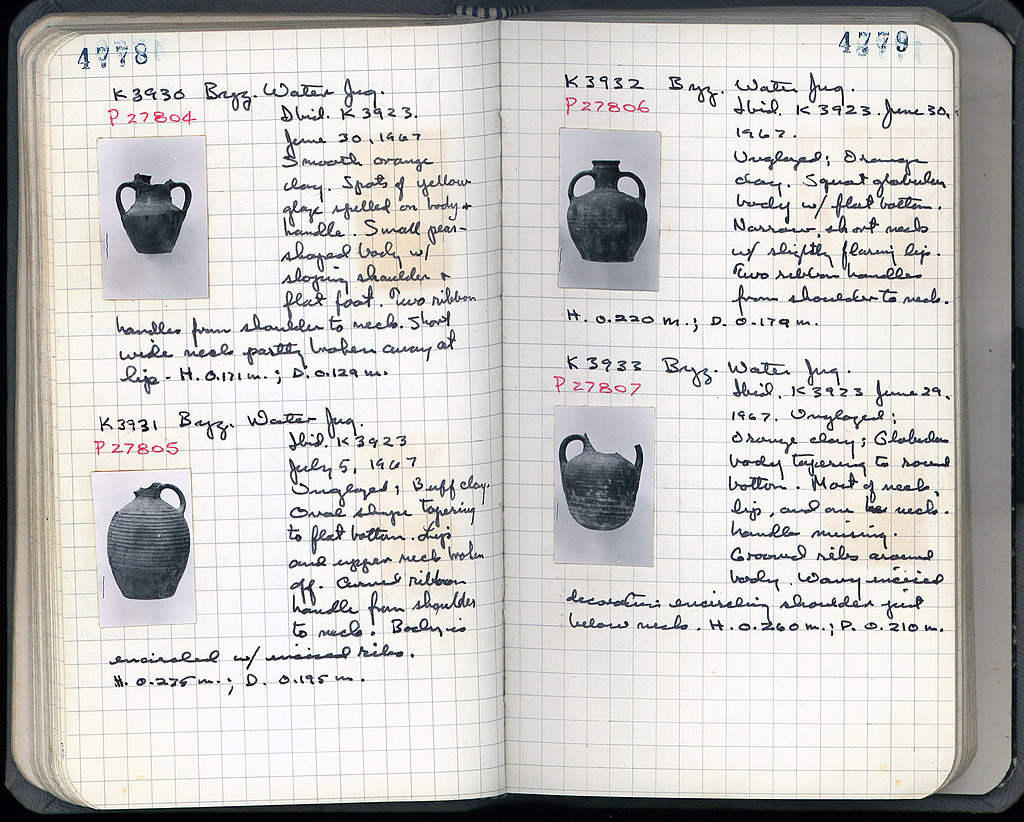 4778
K 3930 Byz. Water Jug.
P 27804
Ibid. K 3923.
June 30, 1967
Smooth orange
clay. Spots of yellow
glaze spilled on body +
handle. Small pear-
shaped body w/
sloping shoulder +
flat foot. Two ribbon
handles from shoulder to neck. Short
wide neck partly broken away at
lip. H. 0.171 m.; D. 0.129 m.
K 3931 Byz. Water Jug.
P 27805
Ibid. K 3923
July 5, 1967
Unglazed; Buff clay.
Oval shape tapering
to flat bottom. Lip
and upper neck broken
off. Curved ribbon
handle from shoulder
to neck. Body is
encircled w/ incised ribs.
H. 0.235 m.; D. 0.195 m.
4779
K 3932 Byz. Water Jug.
P 27806
Ibid. K 3923. June 30,
1967.
Unglazed; Orange
clay. Squat globular
body w/ flat bottom.
Narrow, short neck
w/ slightly flaring lip.
Two ribbon handles
from shoulder to neck.
H. 0.220 m.; D. 0.179 m.
K 3933 Byz. Water Jug.
P 27807
Ibid. K 3923 June 29,
1967. Unglazed;
Orange clay; Globular
body tapering to round
bottom. Most of neck,
lip, and one neck.
handle missing.
Grooved ribs around
body. Wavy incised
decoration encircling shoulder just
below neck. H. 0.260 m.; D. 0.210 m.